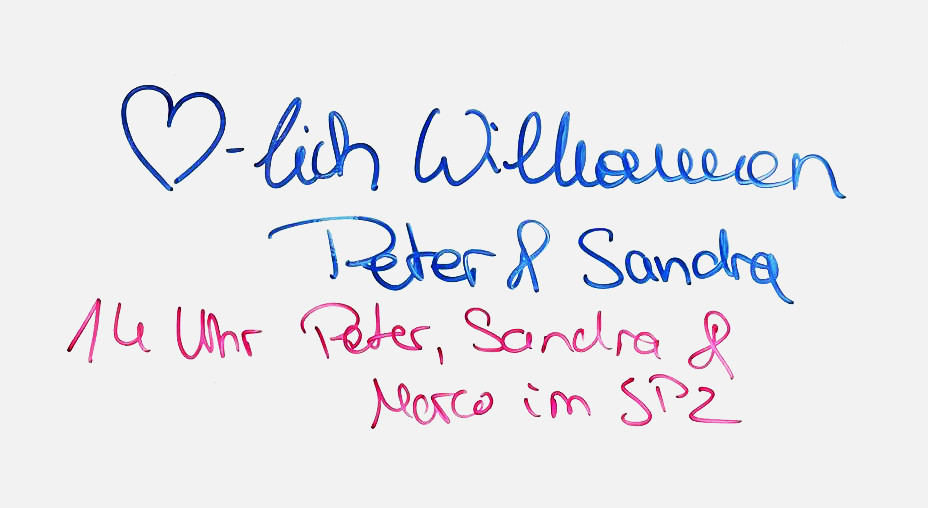 ♡-lich Willkommen
Peter & Sandra
14 Uhr Peter, Sandra &
Marco im SPZ